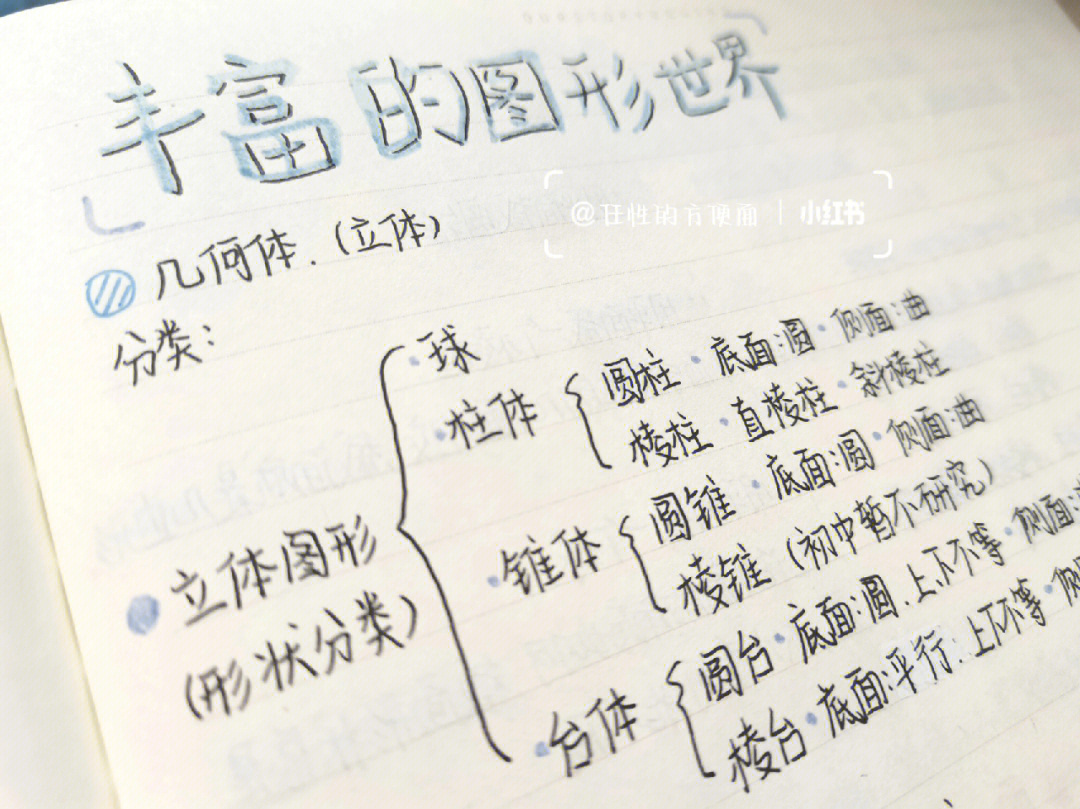 丰富的图形世界
@任性的方便面 | 小红书
几何体.(立体)
分类:
·球
·柱体
圆柱·底面:圆·侧面:曲
棱柱·直棱柱·斜棱柱
立体图形
(形状分类)
·锥体
圆锥·底面:圆·侧面:曲
棱锥(初中暂不研究)
·台体
圆台·底面:圆.上下不等·侧面:
棱台·底面:平行.上下不等·侧